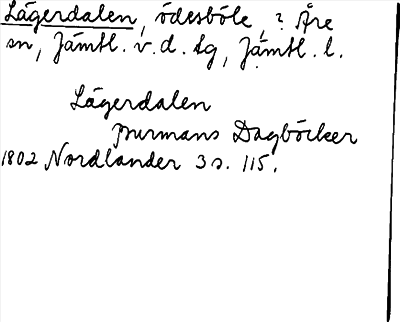 Lägerdalen, ödesböle, ? Åre
sn, Jämtl. v. d. tg, Jämtl. l.
Lägerdalen
Burmans Dagböcker
1802 Nordlander 3 s. 115.